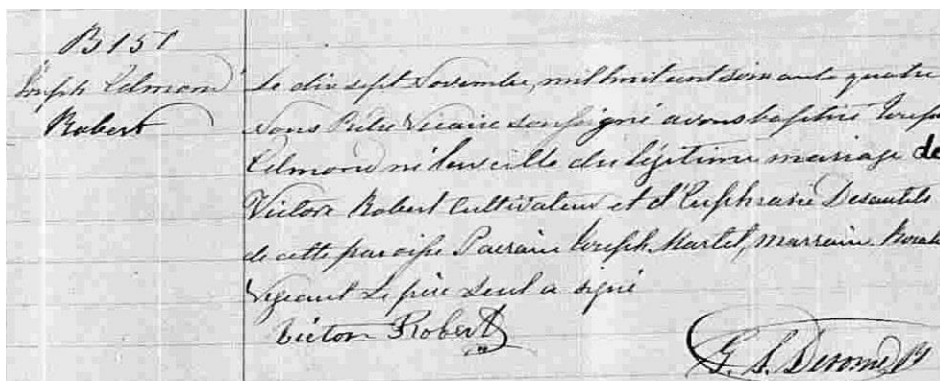 B151
Joseph Edmond
Robert
Le dix sept Novembre, mil huit cent soixante quatre
Nous Prêtre Vicaire soussigné avons baptisé Joseph
Edmond né la veille du légitime mariage de
Victor Robert Cultivateur et d'Euphrasie Desautels
de cette paroisse Parrain Joseph Martel, marraine
Vegeant Le père seul a signé
Victor Robert
G. S. Derome